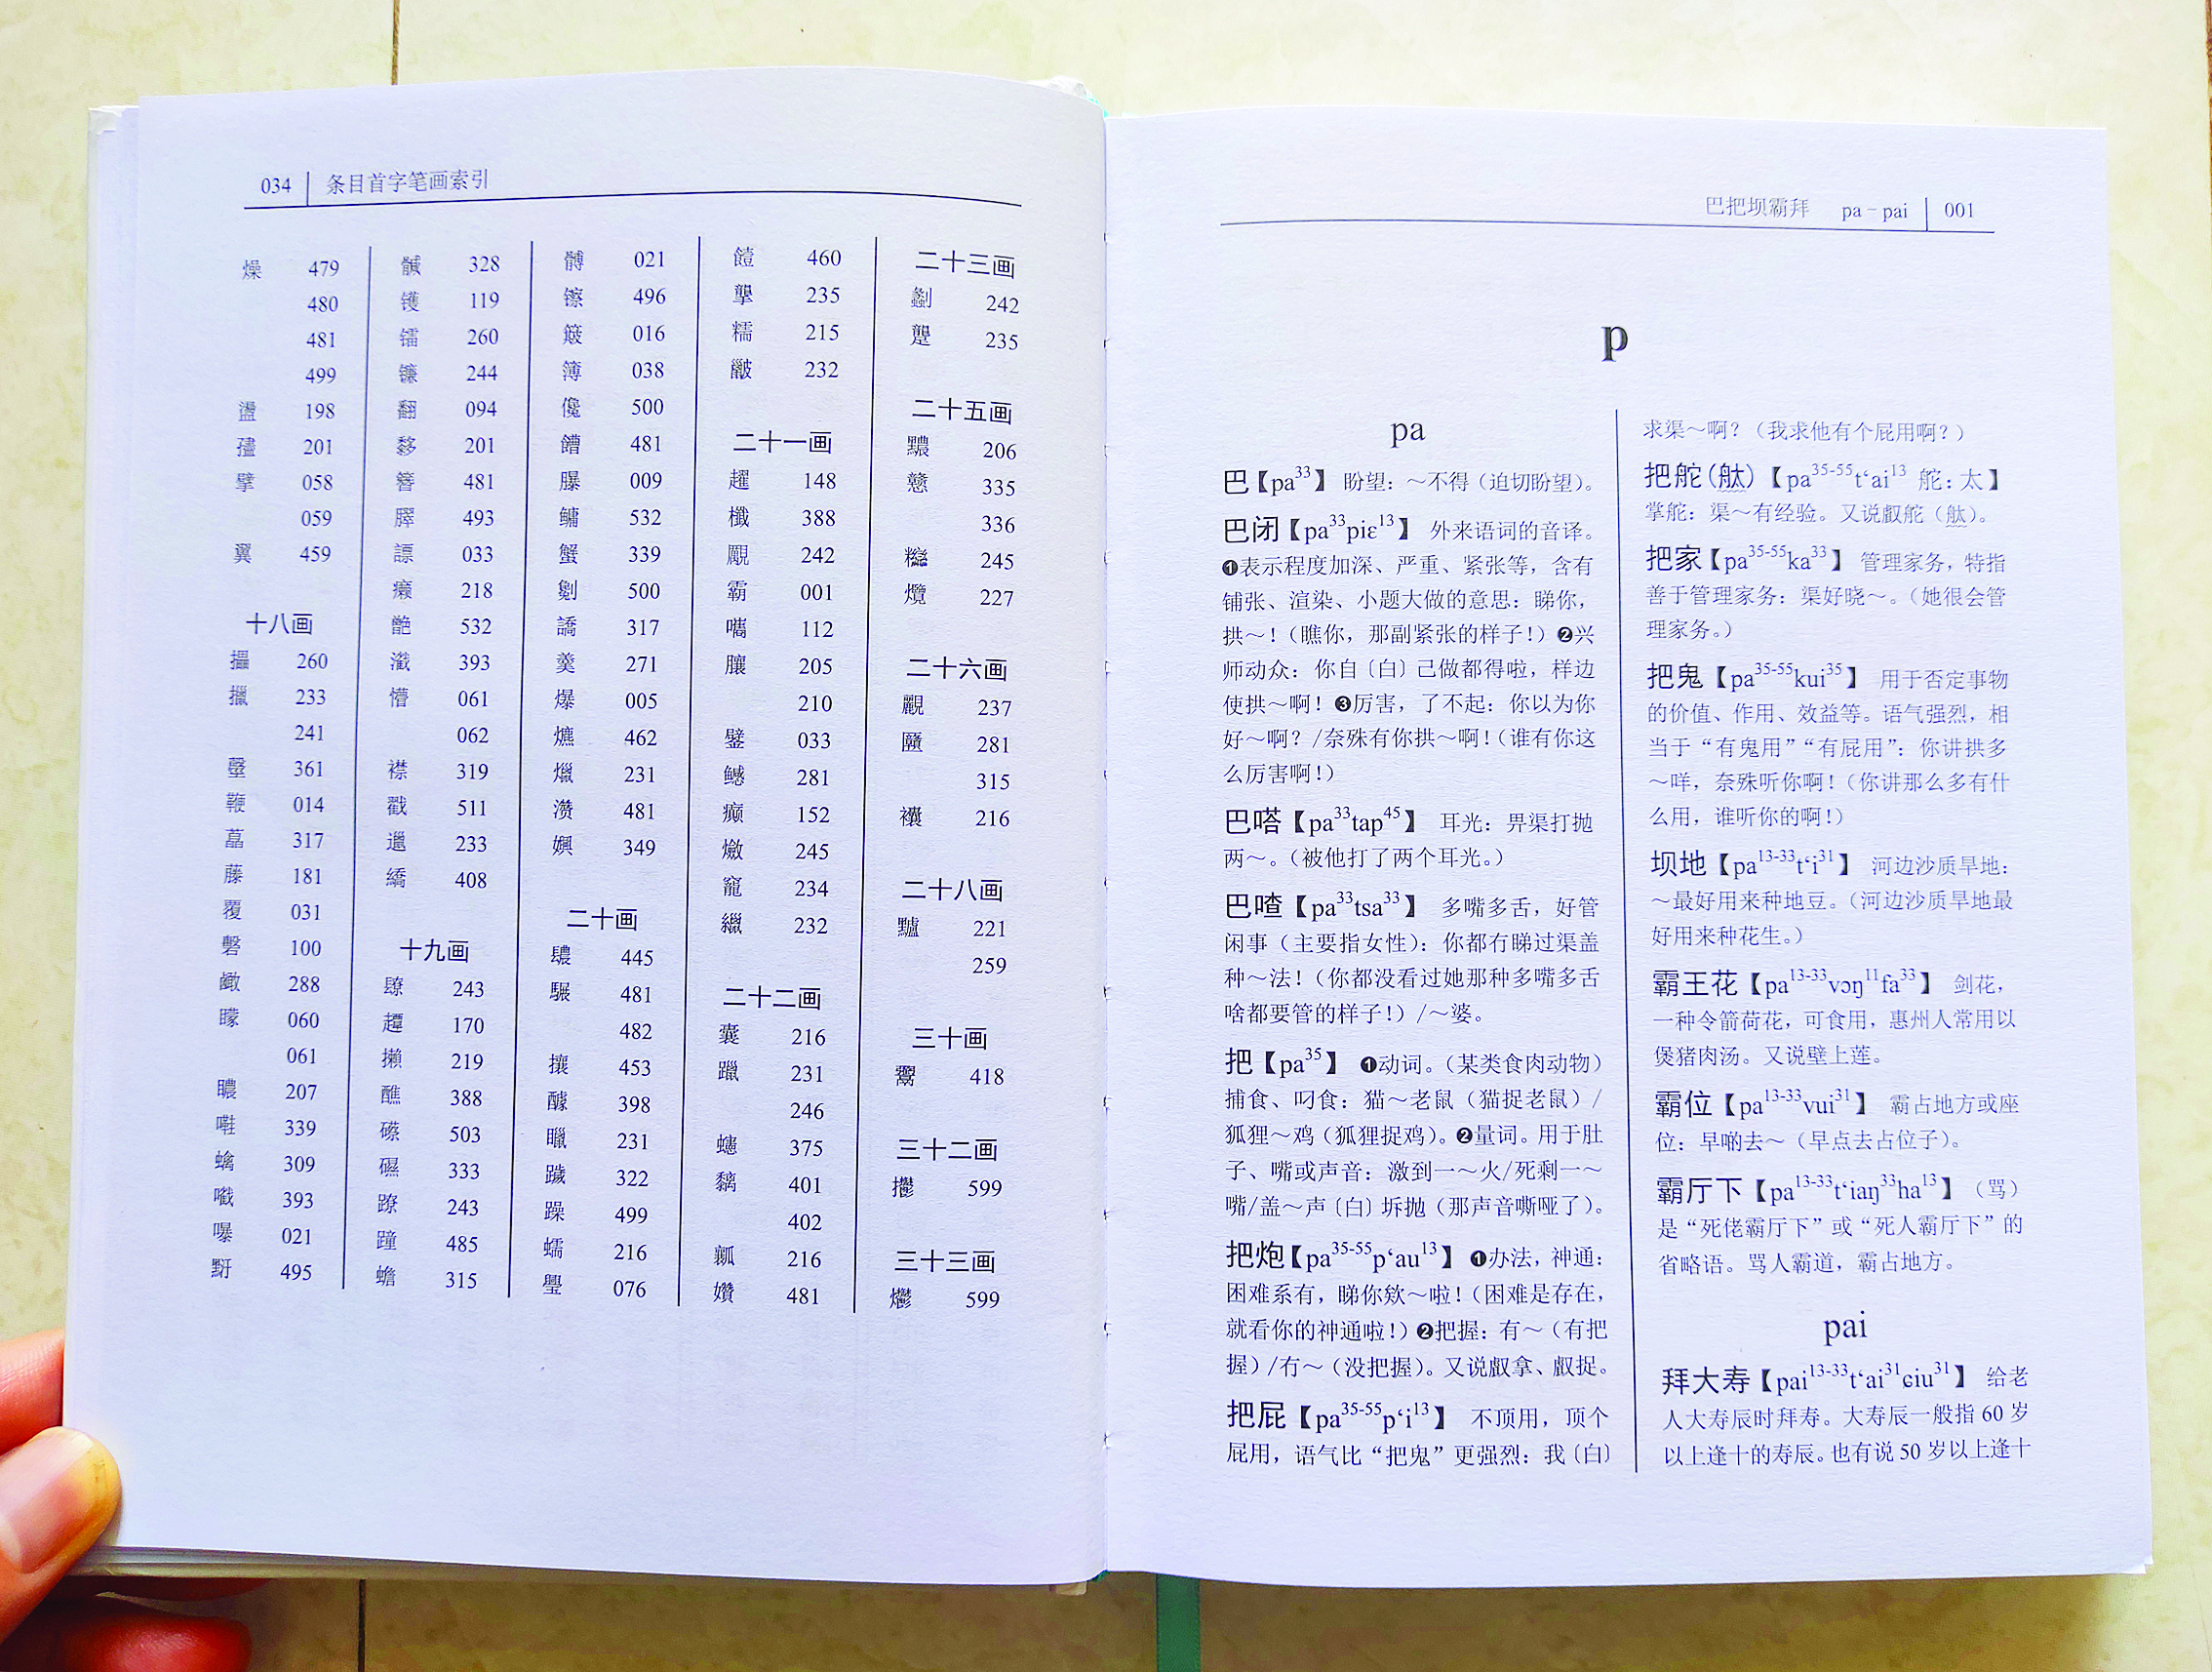 034 条目首字笔画索引
燥 479
480
481
499
盪 198
擘 058
059
翼 459
十八画
攝 260
擸 233
241
鞭 014
藠 317
藤 181
覆 031
磬 100
矇 060
061
307
339
309
393
曝 021
495
328
镬 119
镭 260
镰 244
翻 094
201
簪 481
493
谭 033
癞 218
532
393
懵 061
062
襟 319
戳 511
邋 233
繑 408
十九画
243
170
攋 219
醮 388
503
333
蹽 243
蹱 485
蟾 315
髆 021
镲 496
簸 016
簿 038
儳 500
481
009
鳙 532
蟹 339
劖 500
譑 317
羹 271
爆 005
462
231
瀵 481
349
二十画
445
481
482
攘 453
醵 398
231
322
躁 499
蠕 216
璺 076
饐 460
235
糯 215
232
二十一画
趯 148
388
242
霸 001
112
205
210
033
鳡 281
癫 152
245
234
232
二十二画
囊 216
躐 231
246
蟪 375
401
402
瓤 216
216
481
二十三画
劙 242
235
二十五画
206
戆 335
336
245
227
二十六画
237
281
315
216
二十八画
221
259
三十画
418
三十二画
599
三十三画
599
巴把坝霸拜 pa-pai 001
p
pa
巴【pa33】 盼望：～不得（迫切盼望）。
巴闭【pa33piɛ13】 外来语词的音译。
❶表示程度加深、严重、紧张等，含有
铺张、渲染、小题大做的意思：睇你，
拱～！（瞧你，那副紧张的样子！）❷兴
师动众：你自〔白〕己做都得啦，样边
使拱～啊！❸厉害，了不起：你以为你
好～啊？/奈殊有你拱～啊！（谁有你这
么厉害啊！）
巴嗒【pa33tap45】 耳光：畀渠打抛
两～。（被他打了两个耳光。）
巴喳【pa33tsa33】 多嘴多舌，好管
闲事（主要指女性）：你都冇睇过渠盖
种～法！（你都没看过她那种多嘴多舌
啥都要管的样子！）/～婆。
把【pa35】 ❶动词。（某类食肉动物）
捕食、叼食：猫～老鼠（猫捉老鼠）/
狐狸～鸡（狐狸捉鸡）。❷量词。用于肚
子、嘴或声音：激到一～火/死剩一～
嘴/盖～声〔白〕坼抛（那声音嘶哑了）。
把炮【pa35-55p‘au13】 ❶办法，神通：
困难系有，睇你欸～啦！（困难是存在，
就看你的神通啦！）❷把握：有～（有把
握）/冇～（没把握）。又说叡拿、叡捉。
把屁【pa35-55p‘i13】 不顶用，顶个
屁用，语气比“把鬼”更强烈：我〔白〕
求渠～啊？（我求他有个屁用啊？）
把舵（舦）【pa35-55t‘ai13 舵：太】
掌舵：渠～有经验。又说叡舵（舦）。
把家【pa35-55ka33】 管理家务，特指
善于管理家务：渠好晓～。（她很会管
理家务。）
把鬼【pa35-55kui35】 用于否定事物
的价值、作用、效益等。语气强烈，相
当于“有鬼用”“有屁用”：你讲拱多
～咩，奈殊听你啊！（你讲那么多有什
么用，谁听你的啊！）
坝地【pa13-33t‘i31】 河边沙质旱地：
～最好用来种地豆。（河边沙质旱地最
好用来种花生。）
霸王花【pa13-33vɔŋ11fa33】 剑花，
一种令箭荷花，可食用，惠州人常用以
煲猪肉汤。又说壁上莲。
霸位【pa13-33vui31】 霸占地方或座
位：早啲去～（早点去占位子）。
霸厅下【pa13-33t‘iaŋ33ha13】（骂）
是“死佬霸厅下”或“死人霸厅下”的
省略语。骂人霸道，霸占地方。
pai
拜大寿【pai13-33t‘ai31ɕiu31】 给老
人大寿辰时拜寿。大寿辰一般指 60 岁
以上逢十的寿辰。也有说 50 岁以上逢十